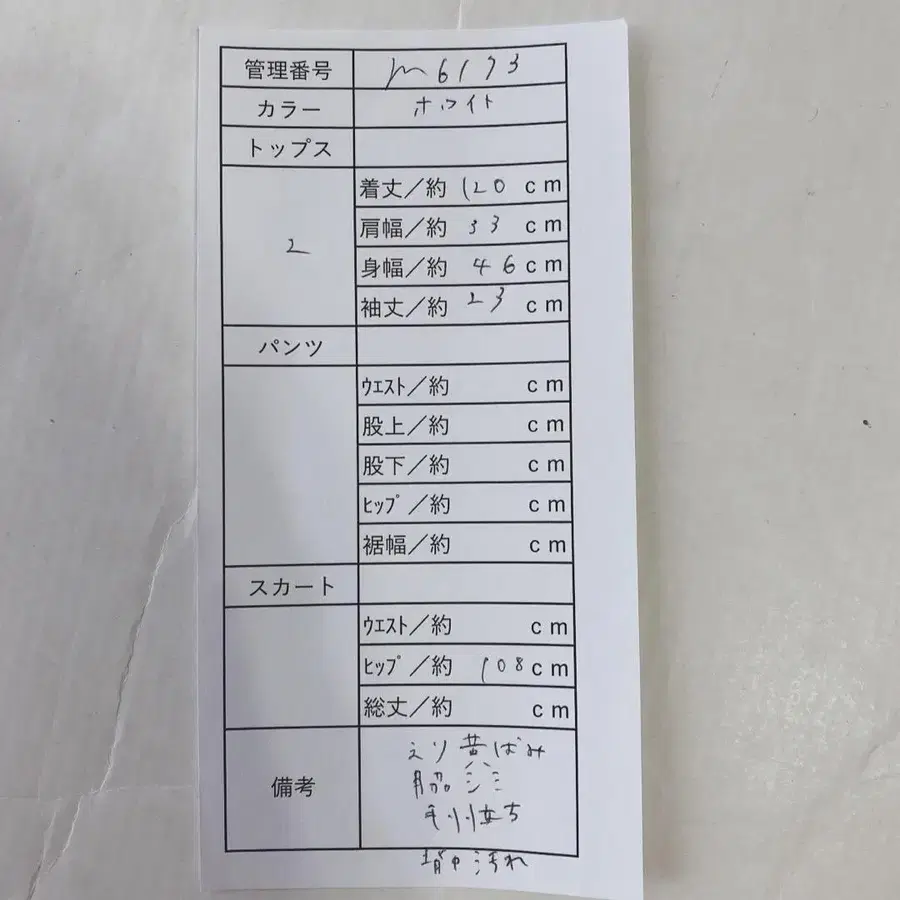 管理番号 m6173
カラー ホワイト
トップス
2
着丈／約 120 cm
肩幅／約 33 cm
身幅／約 46 cm
袖丈／約 23 cm
パンツ
ｳｴｽﾄ／約 cm
股上／約 cm
股下／約 cm
ﾋｯﾌﾟ／約 cm
裾幅／約 cm
スカート
ｳｴｽﾄ／約 cm
ﾋｯﾌﾟ／約 108cm
総丈／約 cm
備考
えり黄ばみ
脇シミ
毛羽立ち
背中汚れ